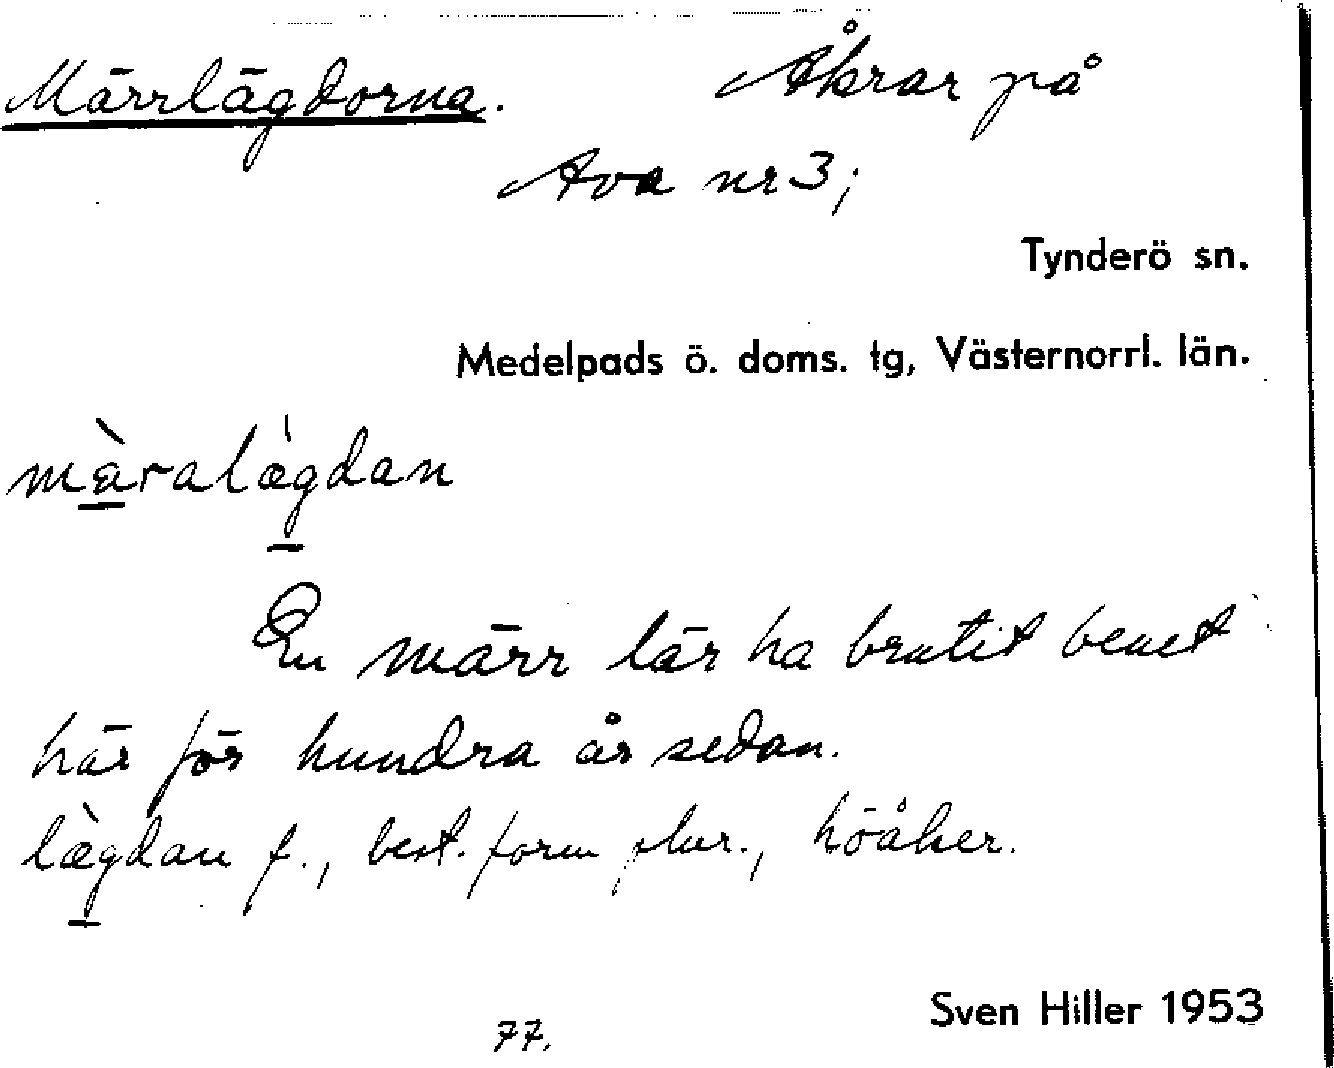 Märrlägdorna. Åkrar på
Ava nr 3;
Tynderö sn.
Medelpads ö. doms. tg, Västernorrl. län.
mæ̀ralæ̀gdan
En märr lär ha brutit benet
här för hundra år sedan.
læ̀gdan f., best. form plur., höåker.
Sven Hiller 1953
77.